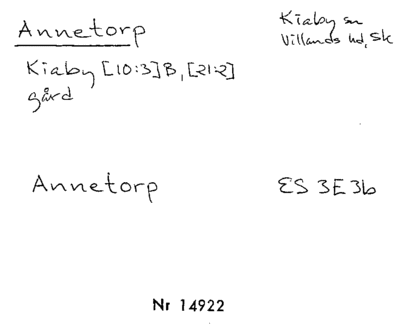 Annetorp
Kiaby sn
Villands hd, Sk
Kiaby [10:3]B, [21:2]
gård
Annetorp
ES 3E3b
Nr 14922